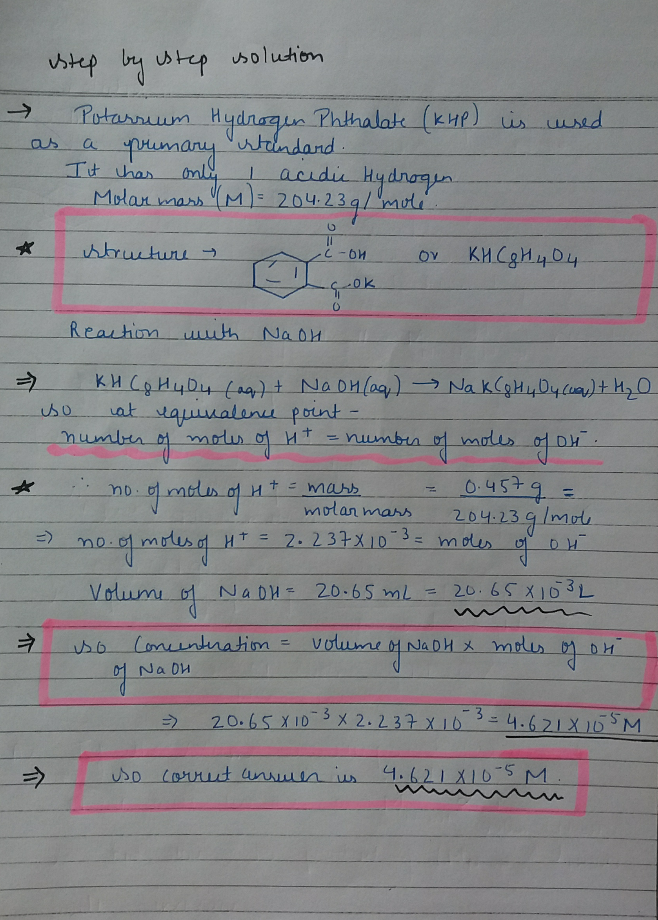 step by step solution
→ Potassium Hydrogen Phthalate (KHP) is used
as a primary standard.
It has only 1 acidic Hydrogen
Molar mass (M) = 204.23 g/mole.
* structure → O C-OH C-OK O or KHC8H4O4
Reaction with NaOH
⇒ KHC8H4O4 (aq) + NaOH(aq) → NaKC8H4O4(aq) + H2O
so at equivalence point -
number of moles of H⁺ = number of moles of OH⁻.
* ∴ no. of moles of H⁺ = mass = 0.457 g =
molar mass 204.23 g/mol
⇒ no. of moles of H⁺ = 2.237×10⁻³ = moles of OH⁻
Volume of NaOH = 20.65 mL = 20.65 ×10⁻³ L
⇒ so Concentration = volume of NaOH × moles of OH⁻
of NaOH
⇒ 20.65 ×10⁻³ × 2.237 ×10⁻³ = 4.621 ×10⁻⁵ M
⇒ so correct answer is 4.621 ×10⁻⁵ M.